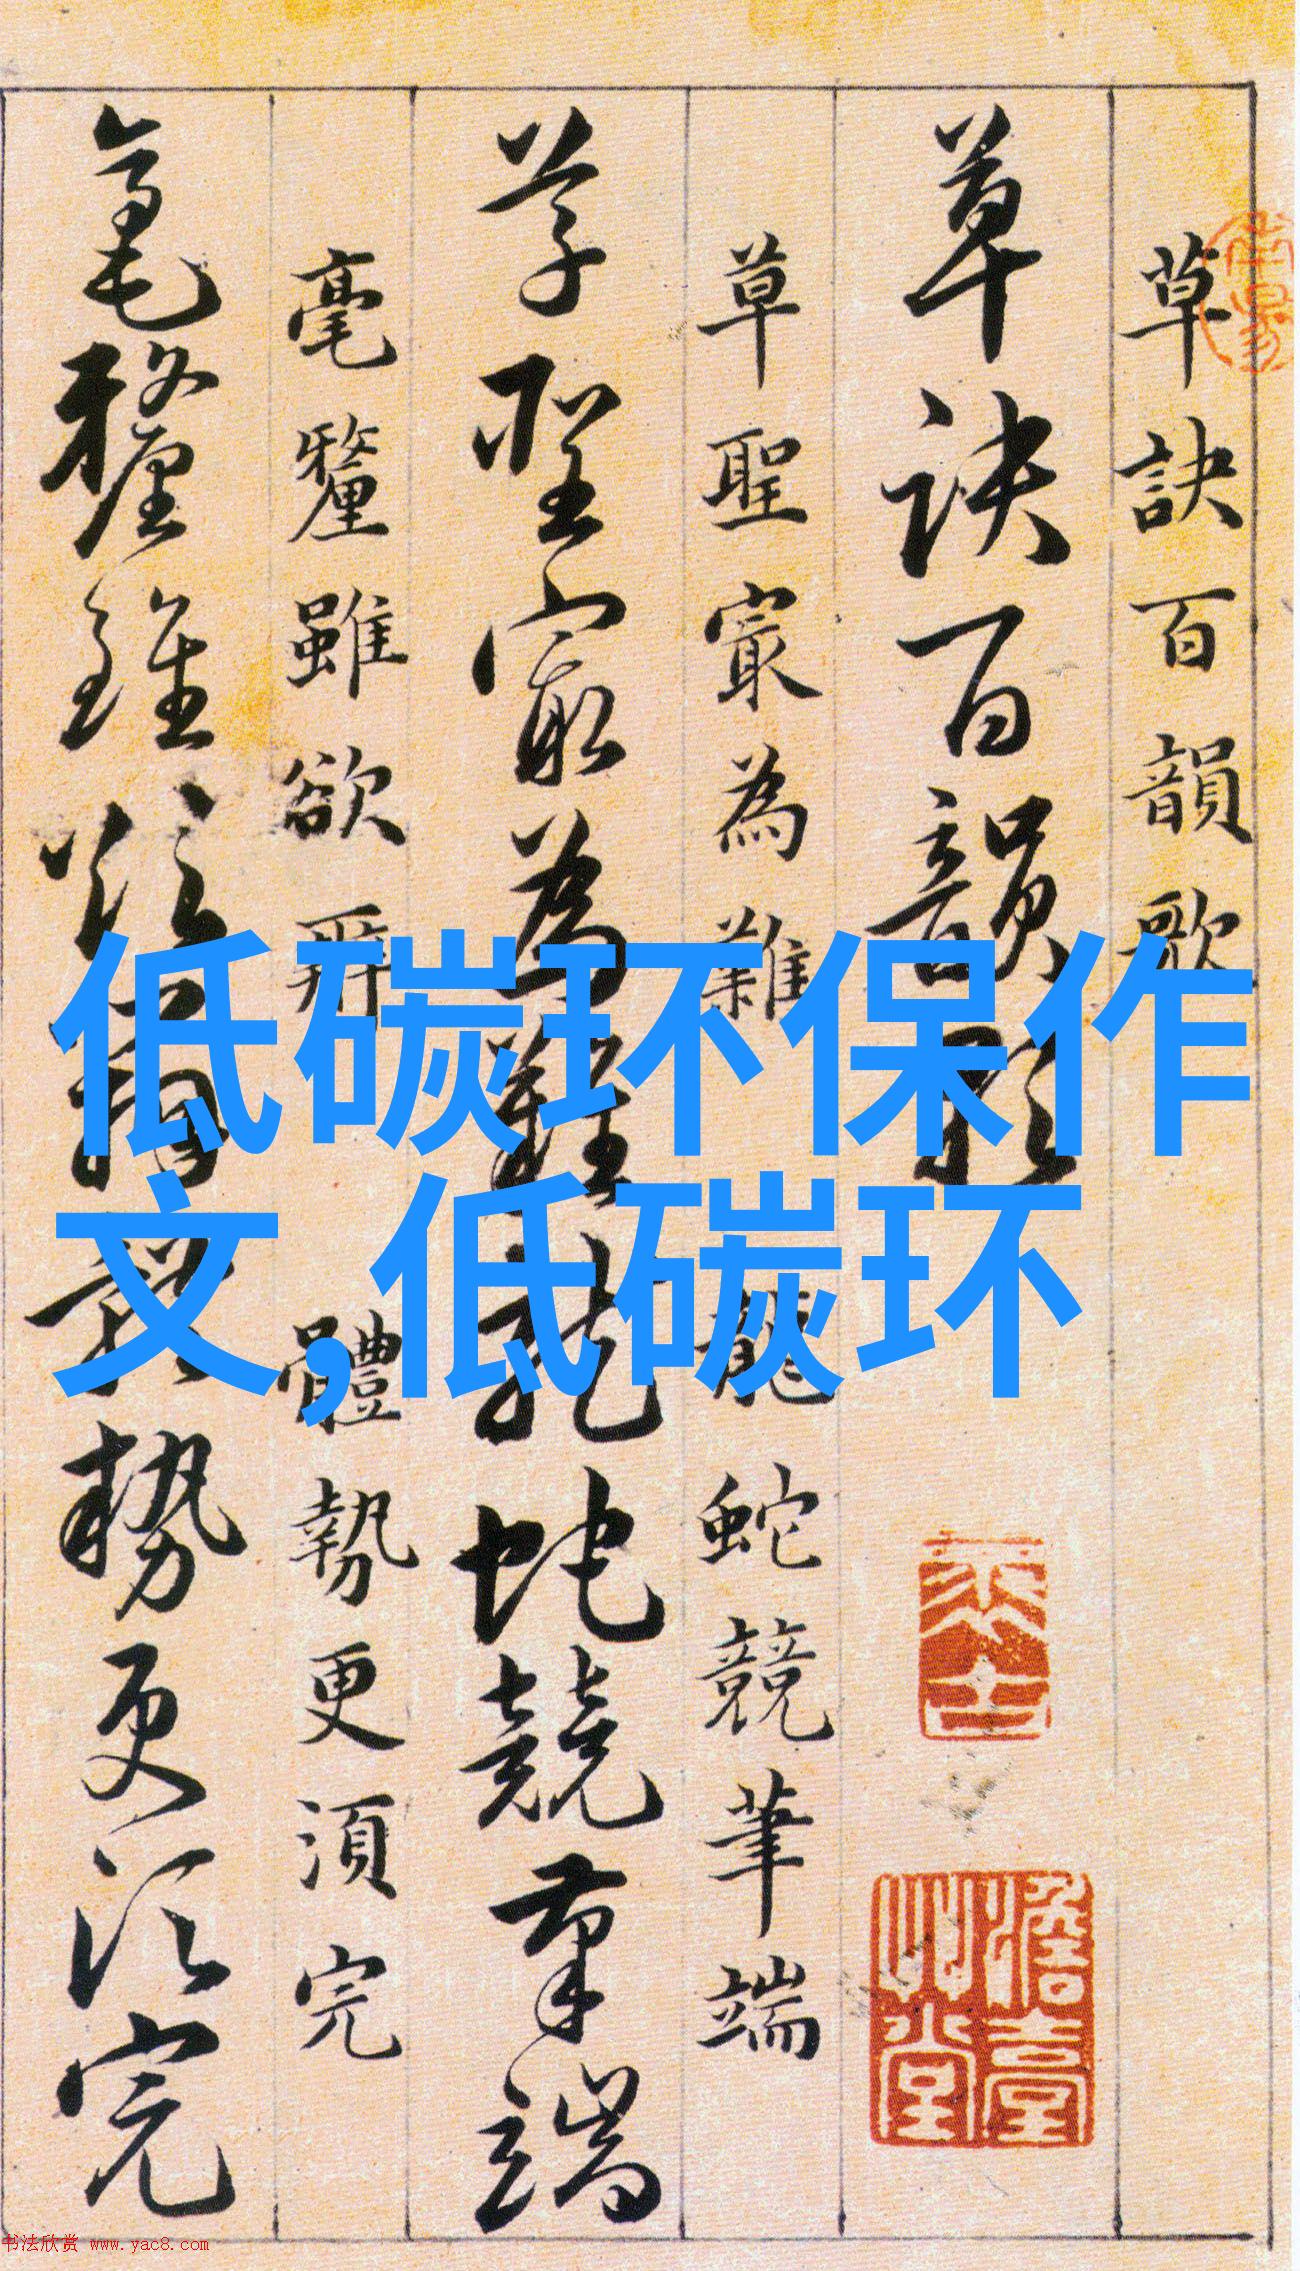 草訣百韻歌
草訣百韻歌
草聖寂為難 龍蛇競筆端
草聖寂為難龍蛇競筆端
毫釐雖欲辨 體勢更須完
毫釐雖欲辨體勢更須完
低碳环保作
文,低碳环
书法欣赏 www.yac8.com